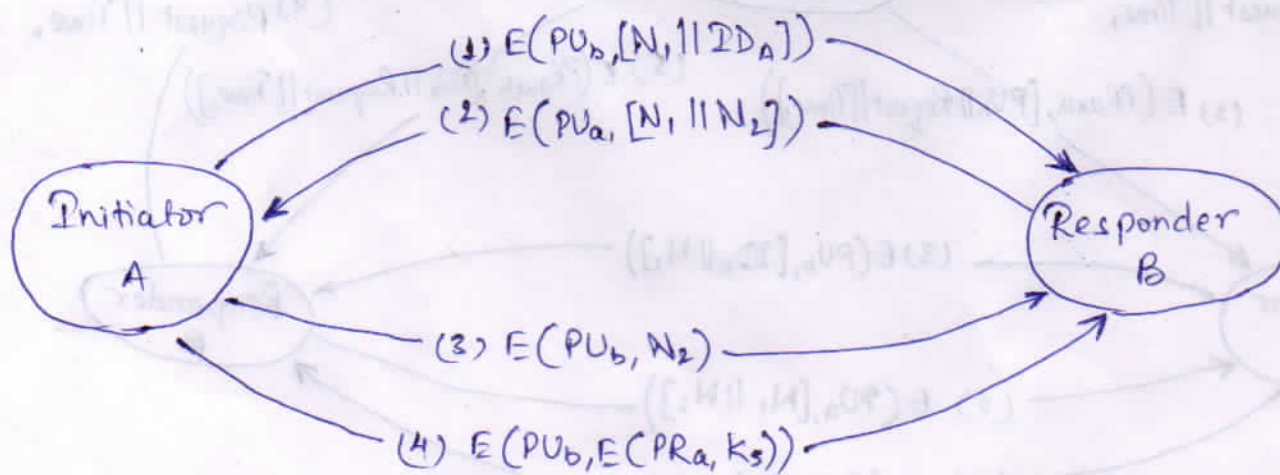 (1) E(PUb, [N1 || IDA])
(2) E(PUa, [N1 || N2])
Initiator
A
Responder
B
(3) E(PUb, N2)
(4) E(PUb, E(PRa, Ks))